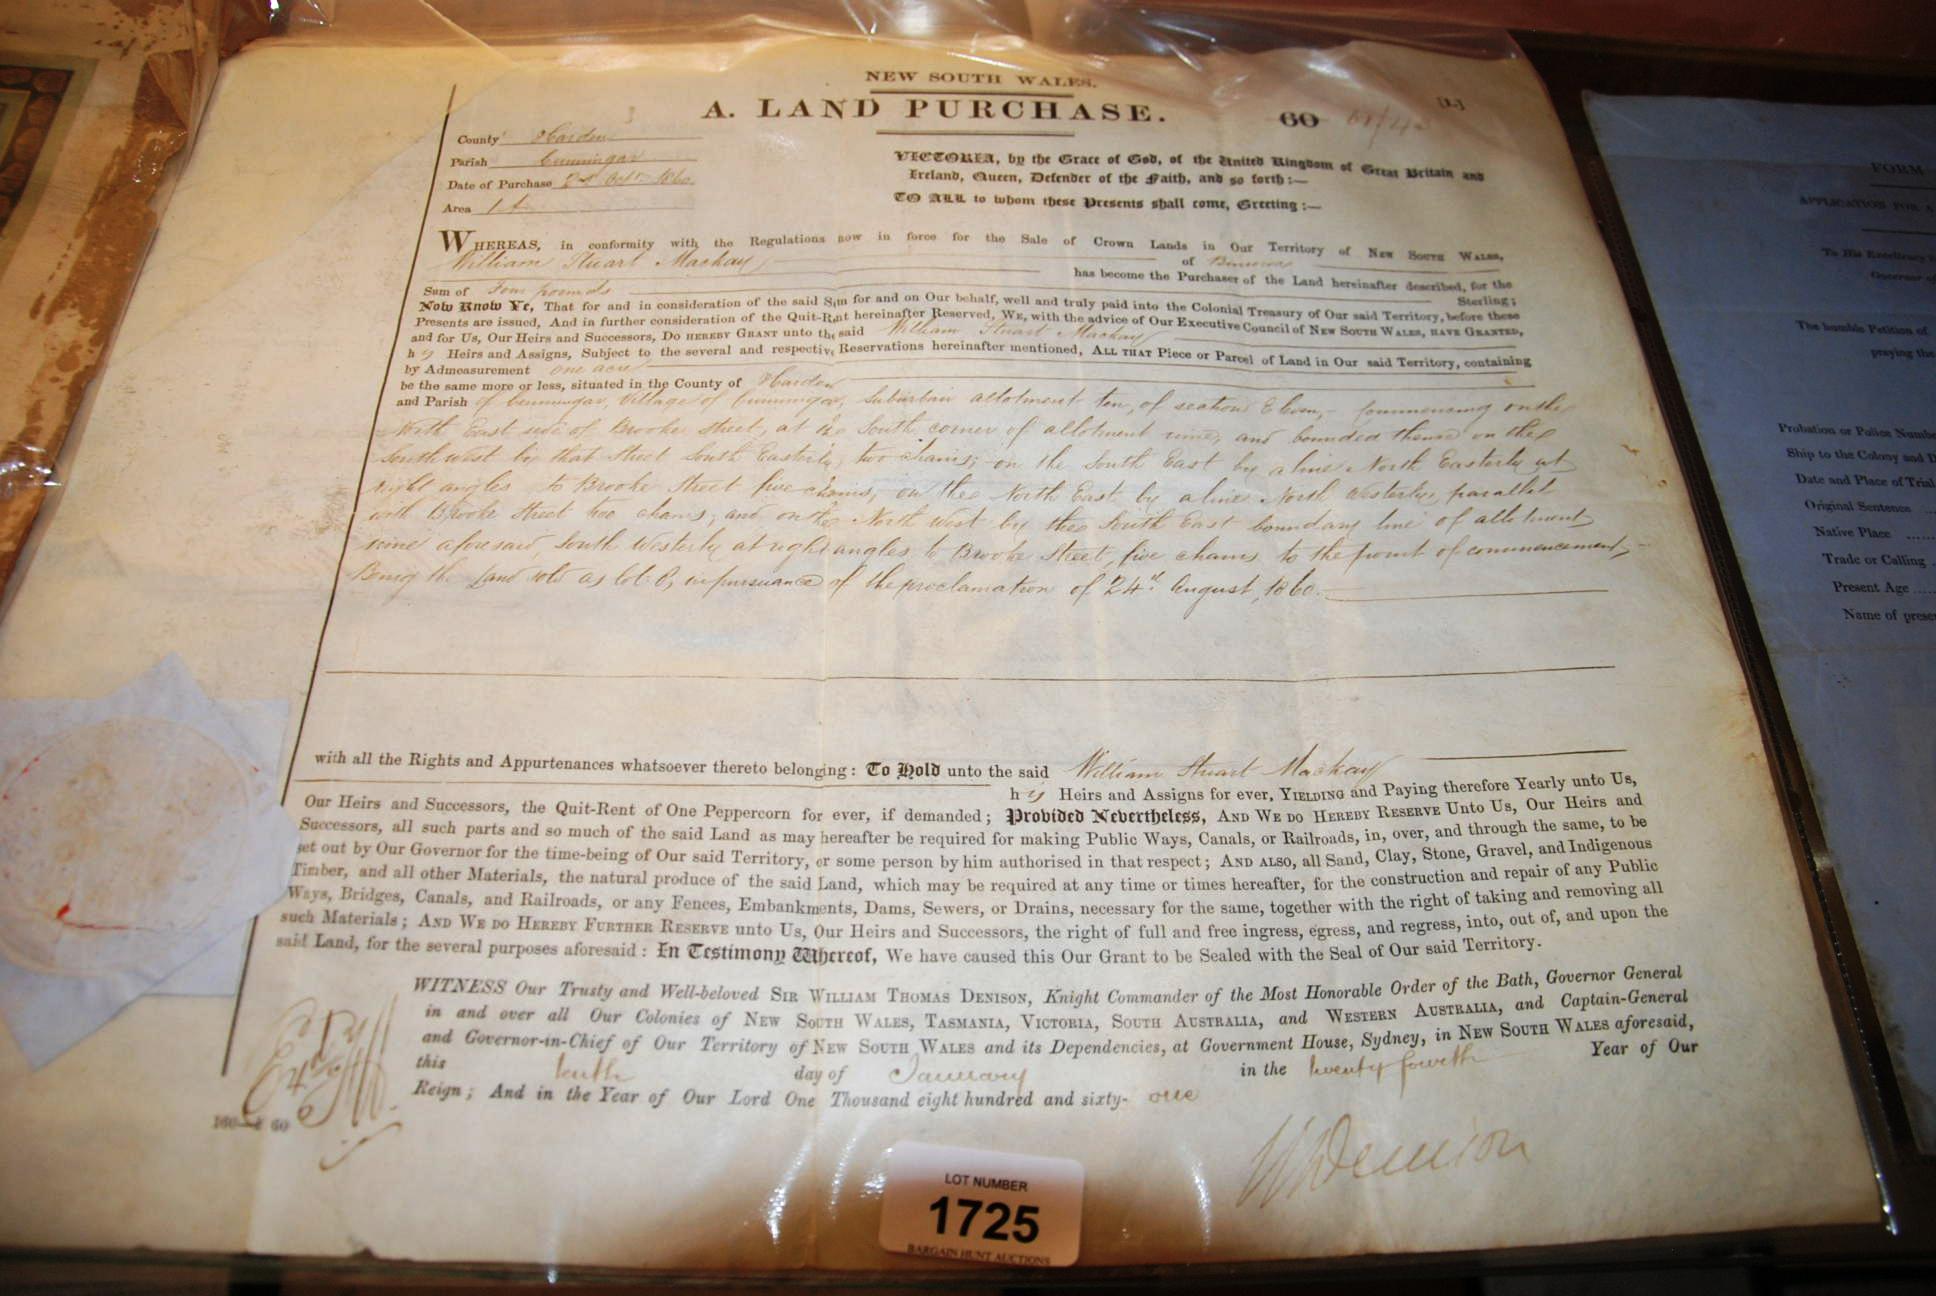 NEW SOUTH WALES.
A. LAND PURCHASE.
60
[L.]
County Harden
Parish Cunningar
Date of Purchase Octr. 1860
Area 1 A
VICTORIA, by the Grace of God, of the United Kingdom of Great Britain and
Ireland, Queen, Defender of the Faith, and so forth:—
TO ALL to whom these Presents shall come, Greeting:—
WHEREAS, in conformity with the Regulations now in force for the Sale of Crown Lands in Our Territory of NEW SOUTH WALES,
William Stuart Mackay of Binnova
has become the Purchaser of the Land hereinafter described, for the
Sum of Four pounds Sterling;
Now Know Ye, That for and in consideration of the said Sum for and on Our behalf, well and truly paid into the Colonial Treasury of Our said Territory, before these
Presents are issued, And in further consideration of the Quit-Rent hereinafter Reserved, WE, with the advice of Our Executive Council of NEW SOUTH WALES, HAVE GRANTED,
and for Us, Our Heirs and Successors, DO HEREBY GRANT unto the said William Stuart Mackay
his Heirs and Assigns, Subject to the several and respective Reservations hereinafter mentioned, ALL THAT Piece or Parcel of Land in Our said Territory, containing
by Admeasurement one acre
be the same more or less, situated in the County of Harden
and Parish of Cunningar, Village of Cunningar, Suburban allotment ten, of section Eleven,- Commencing on the
North East side of Brooke Street, at the South corner of allotment nine, and bounded thence on the
South west by that Street South Easterly, two chains; on the South East by a line North Easterly at
right angles to Brooke Street five chains, on the North East by a line North Westerly, parallel
with Brooke Street two chains; and on the North west by the South East boundary line of allotment
nine aforesaid, South Westerly at right angles to Brooke Street, five chains to the point of commencement,-
Being the Land sold as lot 8, in pursuance of the proclamation of 24th August, 1860.
with all the Rights and Appurtenances whatsoever thereto belonging: To Hold unto the said William Stuart Mackay
his Heirs and Assigns for ever, YIELDING and Paying therefore Yearly unto Us,
Our Heirs and Successors, the Quit-Rent of One Peppercorn for ever, if demanded; Provided Nevertheless, AND WE DO HEREBY RESERVE Unto Us, Our Heirs and
Successors, all such parts and so much of the said Land as may hereafter be required for making Public Ways, Canals, or Railroads, in, over, and through the same, to be
set out by Our Governor for the time-being of Our said Territory, or some person by him authorised in that respect; AND ALSO, all Sand, Clay, Stone, Gravel, and Indigenous
Timber, and all other Materials, the natural produce of the said Land, which may be required at any time or times hereafter, for the construction and repair of any Public
Ways, Bridges, Canals, and Railroads, or any Fences, Embankments, Dams, Sewers, or Drains, necessary for the same, together with the right of taking and removing all
such Materials; AND WE DO HEREBY FURTHER RESERVE unto Us, Our Heirs and Successors, the right of full and free ingress, egress, and regress, into, out of, and upon the
said Land, for the several purposes aforesaid: In Testimony Whereof, We have caused this Our Grant to be Sealed with the Seal of Our said Territory.
WITNESS Our Trusty and Well-beloved SIR WILLIAM THOMAS DENISON, Knight Commander of the Most Honorable Order of the Bath, Governor General
in and over all Our Colonies of NEW SOUTH WALES, TASMANIA, VICTORIA, SOUTH AUSTRALIA, and WESTERN AUSTRALIA, and Captain-General
and Governor-in-Chief of Our Territory of NEW SOUTH WALES and its Dependencies, at Government House, Sydney, in NEW SOUTH WALES aforesaid,
this tenth day of January in the twenty fourth Year of Our
Reign; And in the Year of Our Lord One Thousand eight hundred and sixty- one
W Denison
LOT NUMBER
1725
BARGAIN HUNT AUCTIONS
FORM
APPLICATION FOR A
To His Excellency
Governor of
The humble Petition of
praying the
Probation or Police Numbe
Ship to the Colony and D
Date and Place of Trial
Original Sentence
Native Place
Trade or Calling
Present Age
Name of prese